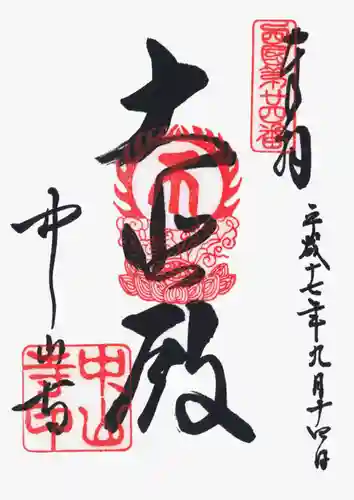 奉拝
西国第廿四番
平成十七年九月十四日
大悲殿
中山寺
中山寺印